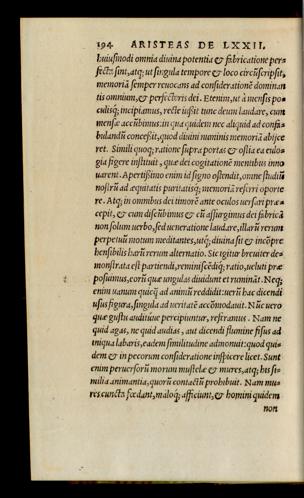 194 ARISTEAS DE LXXII.
huiusmodi omnia diuina potentia & fabricatione per=
fecta sint, atq; ut singula tempore & loco circũscripsit,
memoriã semper reuocans ad considerationẽ dominan
tis omnium, & perfectoris dei. Etenim, ut à mensis po=
culisq; incipiamus, recte iussit tunc deum laudare, cum
mensæ accũbimus: in qua quidem nec aliquid ad confa=
bulandũ concessit, quod diuini numinis memoriã abijce
ret. Simili quoq; ratione supra portas & ostia ea eulo=
gia figere instituit, quæ dei cogitationẽ mentibus inno
uarent. Apertissimo enim id signo ostendit, omne studiũ
nostrũ ad æquitatis puritatisq; memoriã referri oporte
re. Atq; in omnibus dei timorẽ ante oculos uersari præ=
cepit, & cum discũbimus & cũ assurgimus dei fabricã
non solum uerbo, sed ueneratione laudare, illarũ rerum
perpetuũ motum meditantes, utq; diuina sit & incõpre
hensibilis harũ rerum alternatio. Sic igitur breuiter de=
monstrata est partiendi, reminiscẽdiq; ratio, ueluti præ
posuimus, eorũ quæ ungulas diuidunt et ruminãt. Neq;
enim uanum quicq̃ ad animũ reddidit: uerũ hac dicendi
usus figura, singula ad ueritatẽ accõmodauit. Nũc uero
quæ gustu audituue percipiuntur, referamus. Nam ne
quid agas, ne quid audias, aut dicendi flumine fisus ad
iniqua labaris, eadem similitudine admonuit: quod qui=
dem & in pecorum consideratione inspicere licet. Sunt
enim peruersorũ morum mustelæ & mures, atq; his si=
milia animantia, quorũ contactũ prohibuit. Nam mu=
res cuncta fœdant, maloq; afficiunt, & homini quidem
non